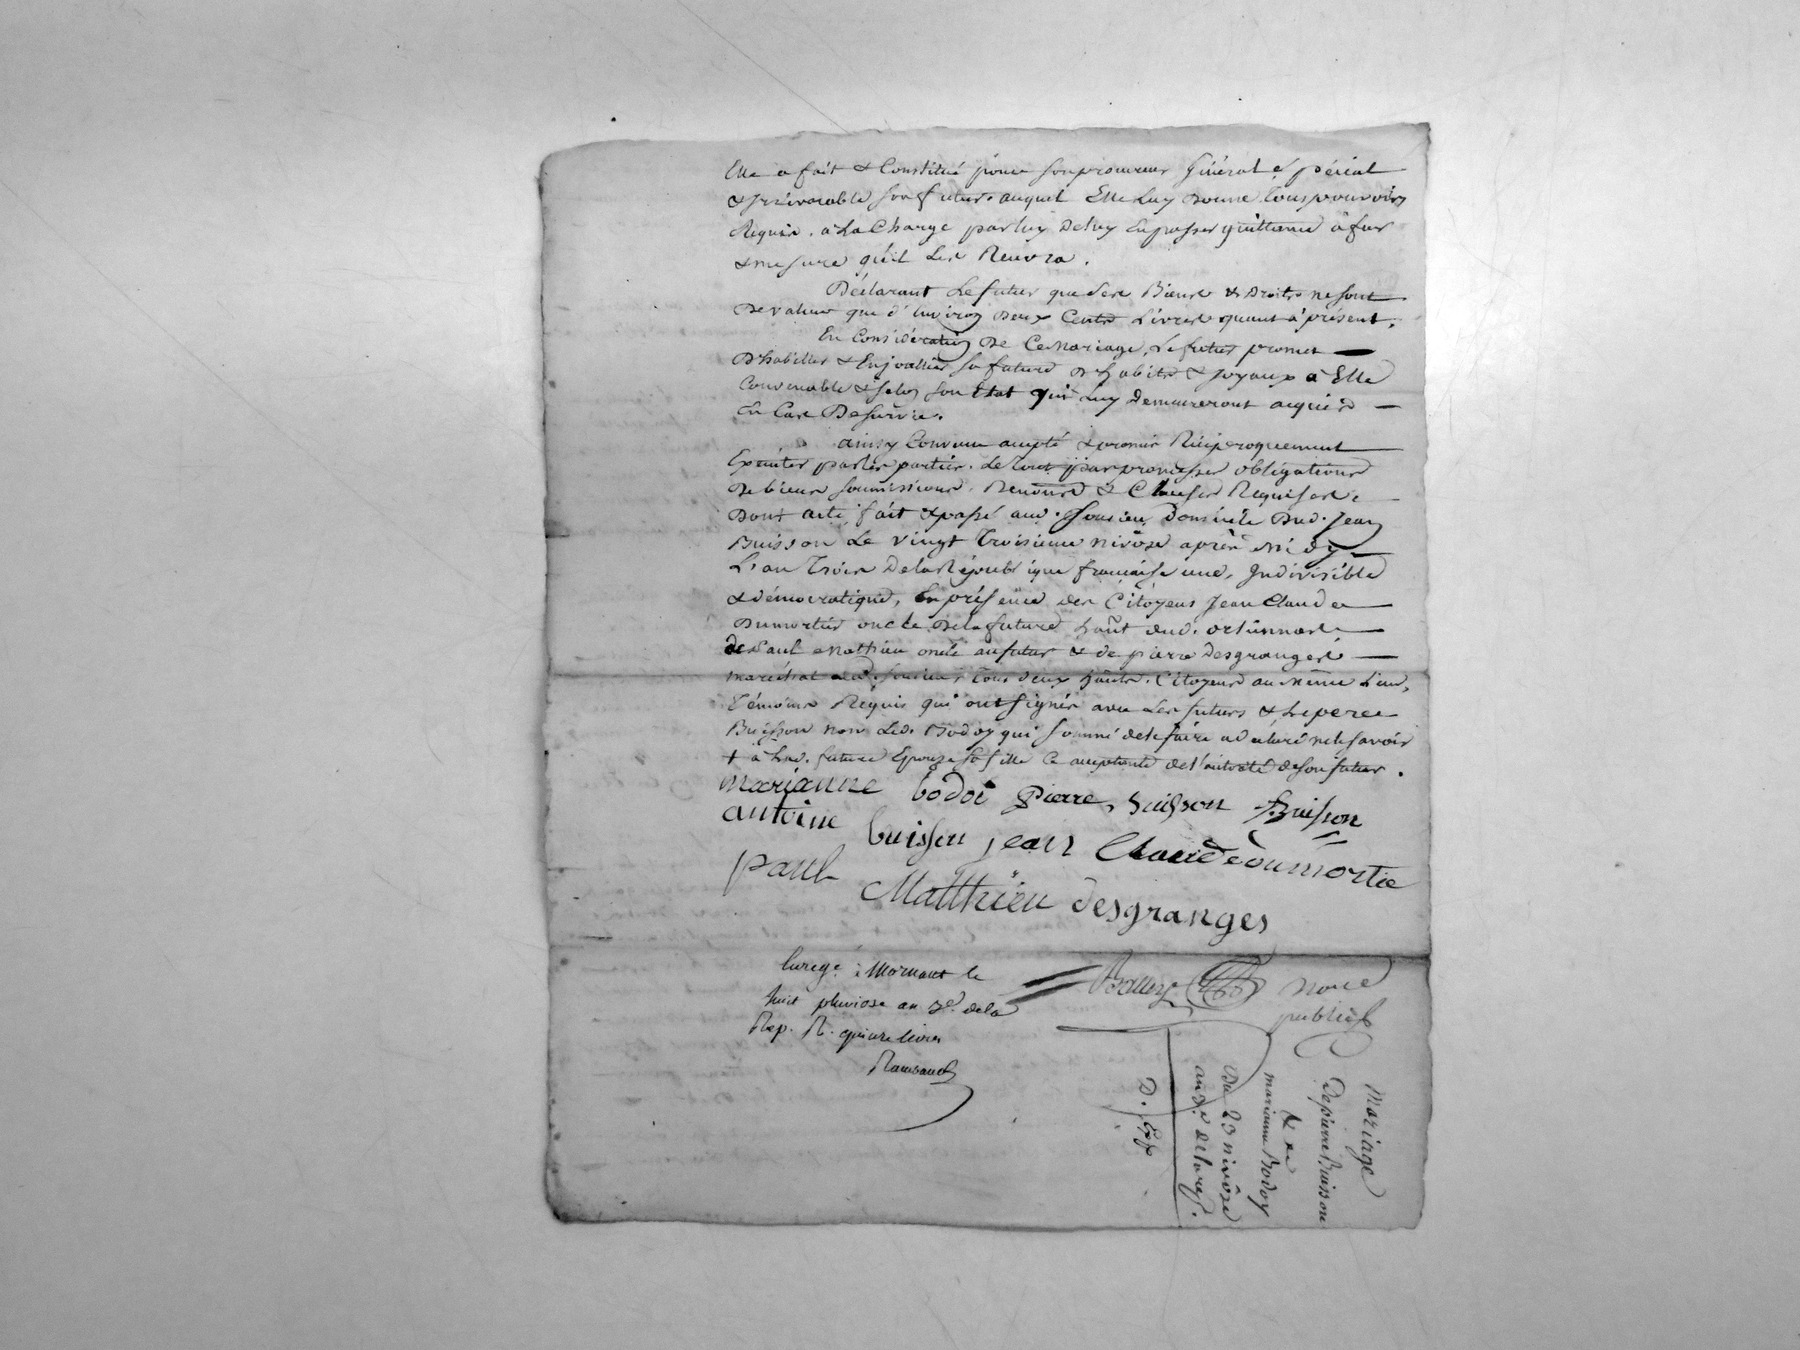 Elle a fait & Constitué pour son procureur Général & spécial
& Irrévocable son futur. auquel Elle Luy Donne Tous pouvoirs
Requis. a La Charge par luy De luy En passer quittance à fur
& mesure qu'il Les Recevra.
Déclarant Le futur que ses Biens & Droits ne sont
De valeur que d'Environ Deux Cents Livres quant à présent.
En Considération De Ce Mariage, Le futur promet
D'habiller & Enjoailler sa future D'habits & Joyaux à Elle
Convenable & selon son Etat qui Luy Demeureront acquis
En Cas De survie.
ainsy Convenu accepté & promis Réciproquement
Exécuter par les parties. Le tout par promesses obligations
De biens soumissions. Renonc & Clauses Requises.
Dont acte, fait & passé aud. Domicile Dud. Jean
Buisson Le vingt Troisieme nivôse après Midy
L'an Trois De la République française une, Indivisible
& démocratique, En présence des Citoyens Jean Claude
Dumortier oncle De la future hant dud.
de Paul Mathieu oncle au futur & de pierre Desgranges
maréchal aud. Tous Deux hants. Citoyens au Même Lieu,
Témoins Requis qui ont signés avec Les futurs & le pere
Buisson non Led. Bodoy qui sommé de le faire a déclaré ne le savoir
+ à Lad. future Epouse sa fille Ce acceptante de l'autorité de son futur.
marianne bodoi Pierre buisson Buisson
antoine buisson jean Claude dumortie
paul Matthieu desgranges
Enregé. à Mornant le
huit pluviose an 3e. de la
Rep. R. quinze livres
not.re
public
Mariage
De pierre Buisson
& de
marianne Bodoy
Du 23 nivôse
an 3.e de la rep.
D. Exp